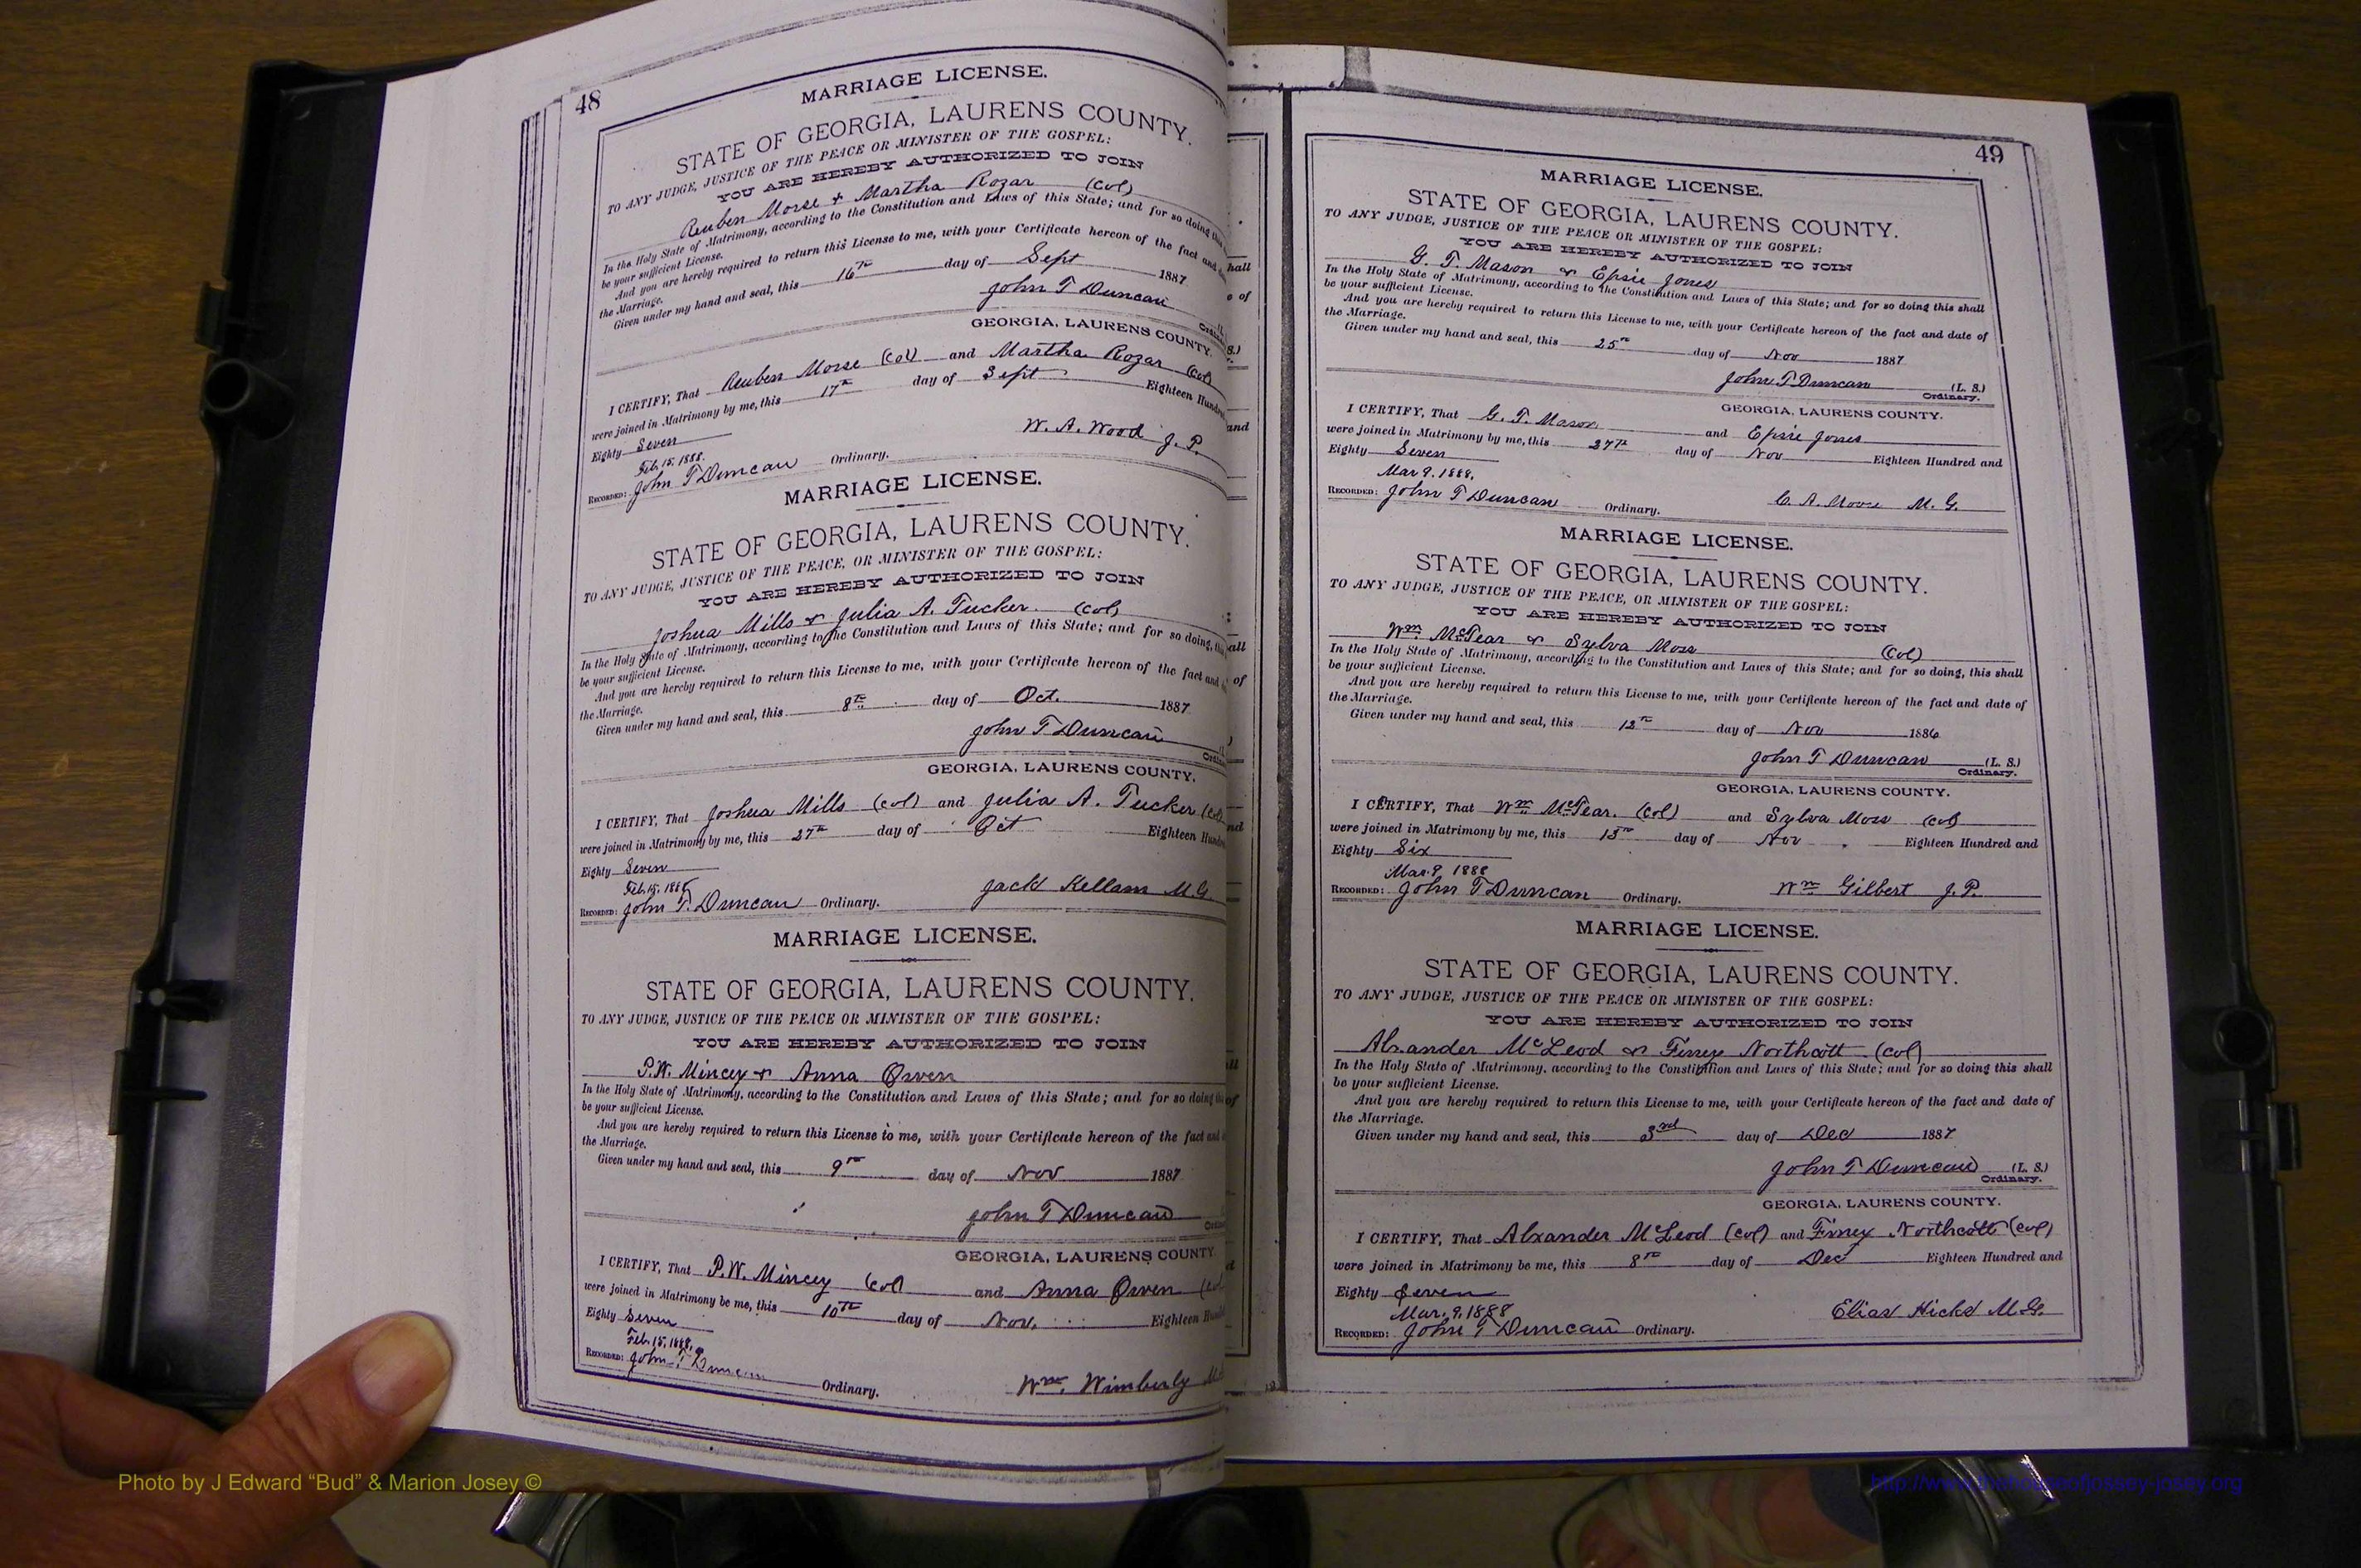 48
MARRIAGE LICENSE.
STATE OF GEORGIA, LAURENS COUNTY.
TO ANY JUDGE, JUSTICE OF THE PEACE OR MINISTER OF THE GOSPEL:
YOU ARE HEREBY AUTHORIZED TO JOIN
Reuben Morse + Martha Rozar (Col)
In the Holy State of Matrimony, according to the Constitution and Laws of this State; and for so doing this
be your sufficient License.
And you are hereby required to return this License to me, with your Certificate hereon of the fact and
the Marriage.
Given under my hand and seal, this 16th day of Sept 1887
John T Duncan
GEORGIA, LAURENS COUNTY.
I CERTIFY, That Reuben Morse (Col) and Martha Rozar (Col)
were joined in Matrimony by me, this 17th day of Sept Eighteen Hundred
Eighty Seven
Feb. 15. 1888.
W. A. Wood J. P.
RECORDED: John T Duncan Ordinary.
MARRIAGE LICENSE.
STATE OF GEORGIA, LAURENS COUNTY.
TO ANY JUDGE, JUSTICE OF THE PEACE, OR MINISTER OF THE GOSPEL:
YOU ARE HEREBY AUTHORIZED TO JOIN
Joshua Mills & Julia A. Tucker. (Col)
In the Holy State of Matrimony, according to the Constitution and Laws of this State; and for so doing, this
be your sufficient License.
And you are hereby required to return this License to me, with your Certificate hereon of the fact and
the Marriage.
Given under my hand and seal, this 8th day of Oct. 1887
John T Duncan
GEORGIA, LAURENS COUNTY.
I CERTIFY, That Joshua Mills (Col) and Julia A. Tucker (Col
were joined in Matrimony by me, this 27th day of Oct Eighteen Hundre
Eighty Seven
Feb. 15, 1888
Jack Kellam M.G.
RECORDED: John T. Duncan Ordinary.
MARRIAGE LICENSE.
STATE OF GEORGIA, LAURENS COUNTY.
TO ANY JUDGE, JUSTICE OF THE PEACE OR MINISTER OF THE GOSPEL:
YOU ARE HEREBY AUTHORIZED TO JOIN
P.W. Mincey & Anna Owen
In the Holy State of Matrimony, according to the Constitution and Laws of this State; and for so doing
be your sufficient License.
And you are hereby required to return this License to me, with your Certificate hereon of the fact and
the Marriage.
Given under my hand and seal, this 9th day of Nov 1887
John T Duncan
GEORGIA, LAURENS COUNTY
I CERTIFY, That P.W. Mincey (Col) and Anna Owen
were joined in Matrimony be me, this 10th day of Nov. Eighteen
Eighty Seven
Feb. 15, 1888.
RECORDED: John T Duncan Ordinary.
Wm. Wimberly
49
MARRIAGE LICENSE.
STATE OF GEORGIA, LAURENS COUNTY.
TO ANY JUDGE, JUSTICE OF THE PEACE OR MINISTER OF THE GOSPEL:
YOU ARE HEREBY AUTHORIZED TO JOIN
G. T. Mason & Epsie Jones
In the Holy State of Matrimony, according to the Constitution and Laws of this State; and for so doing this shall
be your sufficient License.
And you are hereby required to return this License to me, with your Certificate hereon of the fact and date of
the Marriage.
Given under my hand and seal, this 25th day of Nov 1887
John T Duncan (L. S.)
Ordinary.
GEORGIA, LAURENS COUNTY.
I CERTIFY, That G. T. Mason and Epsie Jones
were joined in Matrimony by me, this 27th day of Nov Eighteen Hundred and
Eighty Seven
Mar 9. 1888.
C. A. Moore M. G.
RECORDED: John T Duncan Ordinary.
MARRIAGE LICENSE.
STATE OF GEORGIA, LAURENS COUNTY.
TO ANY JUDGE, JUSTICE OF THE PEACE, OR MINISTER OF THE GOSPEL:
YOU ARE HEREBY AUTHORIZED TO JOIN
Wm McTear & Sylva Moss (Col)
In the Holy State of Matrimony, according to the Constitution and Laws of this State; and for so doing, this shall
be your sufficient License.
And you are hereby required to return this License to me, with your Certificate hereon of the fact and date of
the Marriage.
Given under my hand and seal, this 12th day of Nov 1886
John T Duncan (L. S.)
Ordinary.
GEORGIA, LAURENS COUNTY.
I CERTIFY, That Wm McTear. (Col) and Sylva Moss (Col)
were joined in Matrimony by me, this 13th day of Nov Eighteen Hundred and
Eighty Six
Mar. 9 1888
RECORDED: John T Duncan Ordinary.
Wm Gilbert J. P.
MARRIAGE LICENSE.
STATE OF GEORGIA, LAURENS COUNTY.
TO ANY JUDGE, JUSTICE OF THE PEACE OR MINISTER OF THE GOSPEL:
YOU ARE HEREBY AUTHORIZED TO JOIN
Alxander McLeod & Northcott (Col)
In the Holy State of Matrimony, according to the Constitution and Laws of this State; and for so doing this shall
be your sufficient License.
And you are hereby required to return this License to me, with your Certificate hereon of the fact and date of
the Marriage.
Given under my hand and seal, this 3rd day of Dec 1887
John T Duncan (L. S.)
Ordinary.
GEORGIA, LAURENS COUNTY.
I CERTIFY, That Alxander McLeod (Col) and Northcott (Col)
were joined in Matrimony be me, this 8th day of Dec Eighteen Hundred and
Eighty Seven
Mar. 9. 1888
Elias Hicks M.G.
RECORDED: John T Duncan Ordinary.
Photo by J Edward “Bud” & Marion Josey ©
http://www.thehouseofjossey-josey.org